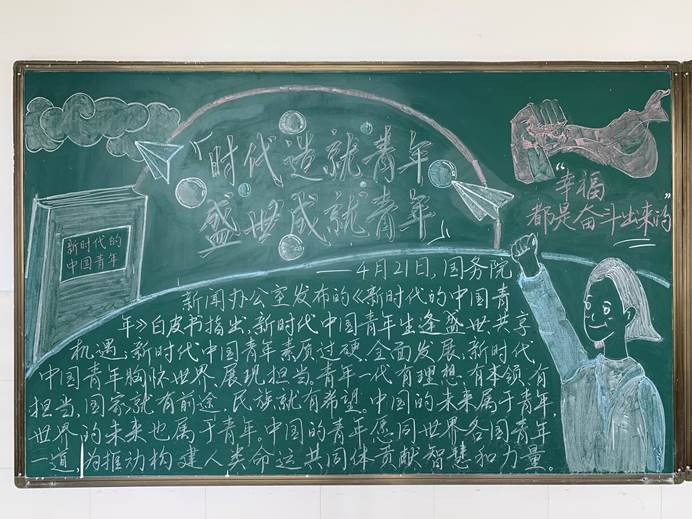 “时代造就青年
盛世成就青年”
“幸福
都是奋斗出来的”
新时代的
中国青年
——4月21日,国务院
新闻办公室发布的《新时代的中国青
年》白皮书指出,新时代中国青年生逢盛世共享
机遇,新时代中国青年素质过硬、全面发展,新时代
中国青年胸怀世界、展现担当。青年一代有理想,有本领,有
担当,国家就有前途,民族就有希望。中国的未来属于青年,
世界的未来也属于青年。中国的青年愿同世界各国青年
一道,为推动构建人类命运共同体贡献智慧和力量。